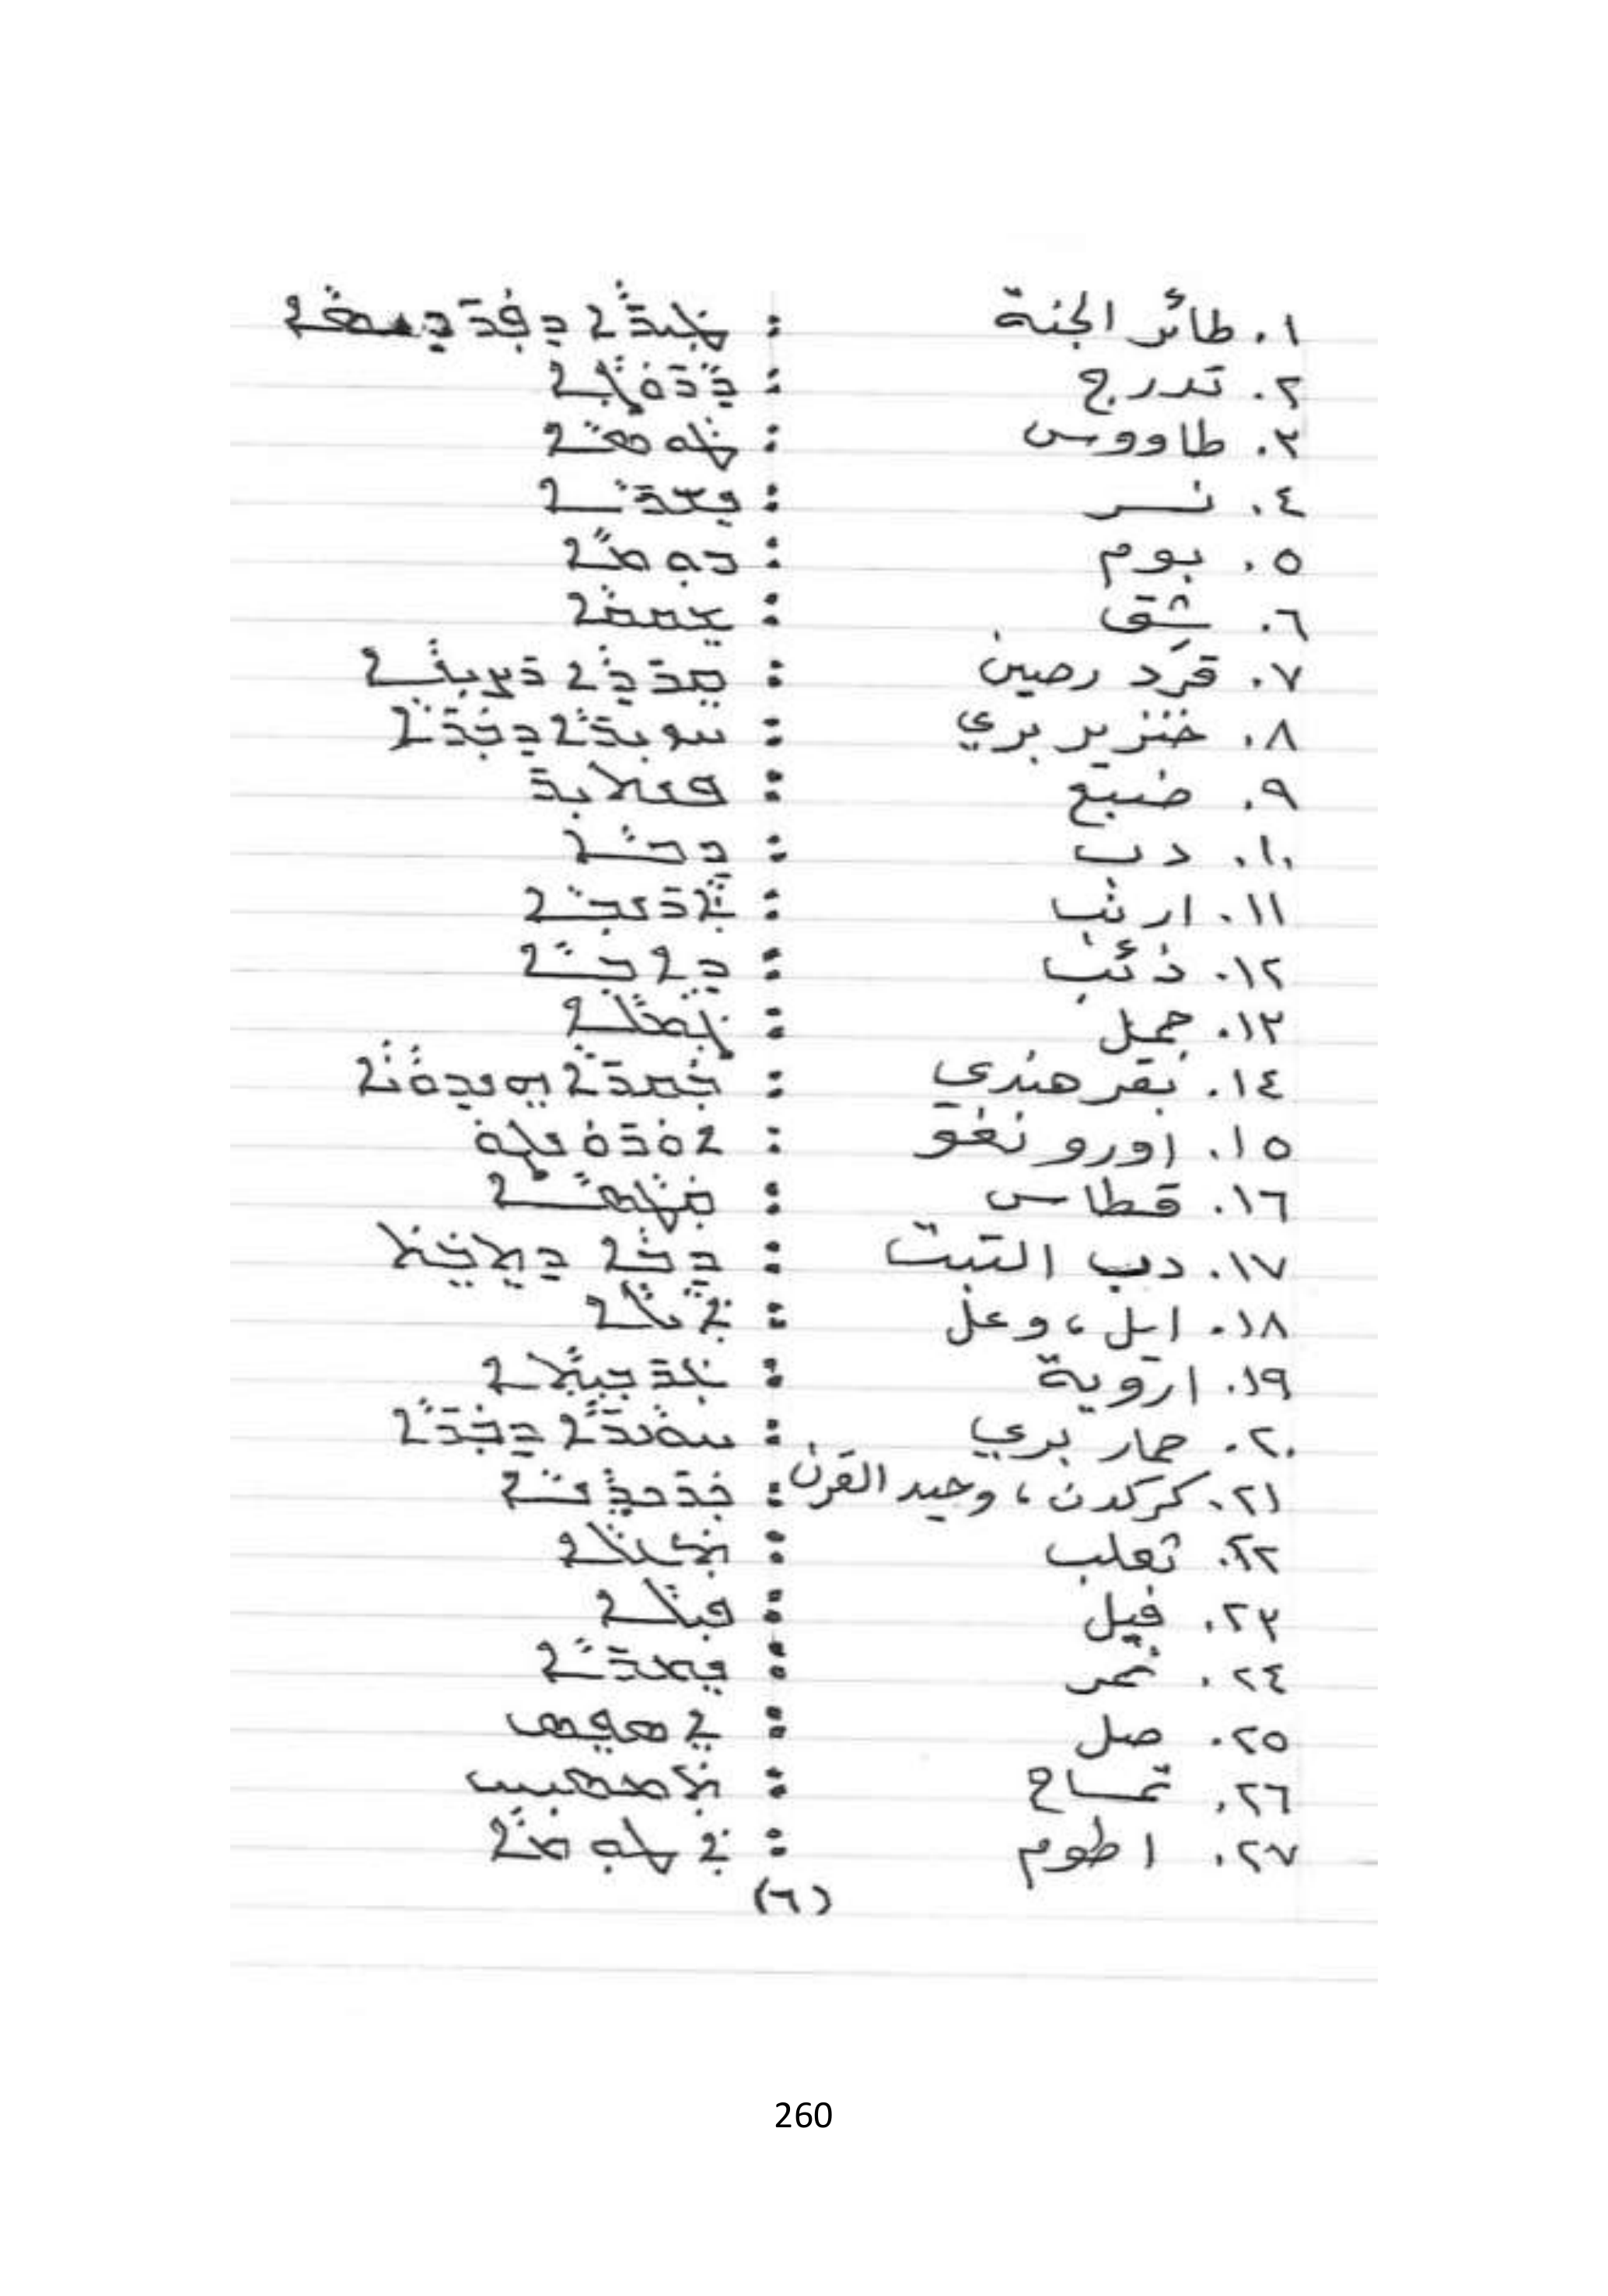 ١. طائر الجنة : ܛܝܪܐ ܕܦܪܕܝܣܐ
٢. تدرج :
٣. طاووس : ܛܘܣܐ
٤. نسر : ܢܫܪܐ
٥. بوم : ܒܘܡܐ
٦. شِق :
٧. قرد رصين : ܩܪܕܐ ܪܙܝܢܐ
٨. خنزير بري : ܚܙܝܪܐ ܕܒܪܐ
٩. ضبع :
١٠. دب : ܕܒܐ
١١. ارنب : ܐܪܢܒܐ
١٢. ذئب : ܕܐܒܐ
١٣. جمل : ܓܡܠܐ
١٤. بقر هندي : ܒܩܪܐ ܗܢܕܘܝܐ
١٥. اورونغو : ܐܘܪܘܢܓܘ
١٦. قطاس : ܩܛܣܐ
١٧. دب التبت : ܕܒܐ ܕܬܝܒܬ
١٨. ايل ، وعل : ܐܝܠܐ
١٩. اروية :
٢٠. حمار بري : ܚܡܪܐ ܕܒܪܐ
٢١. كركدن ، وحيد القرن : ܟܪܟܕܢܐ
٢٢. ثعلب : ܬܥܠܐ
٢٣. فيل : ܦܝܠܐ
٢٤. نمر : ܢܡܪܐ
٢٥. صل : ܐܣܦܣ
٢٦. تمساح : ܬܡܣܝܚ
٢٧. اطوم : ܐܛܘܡܐ
(٦)
260